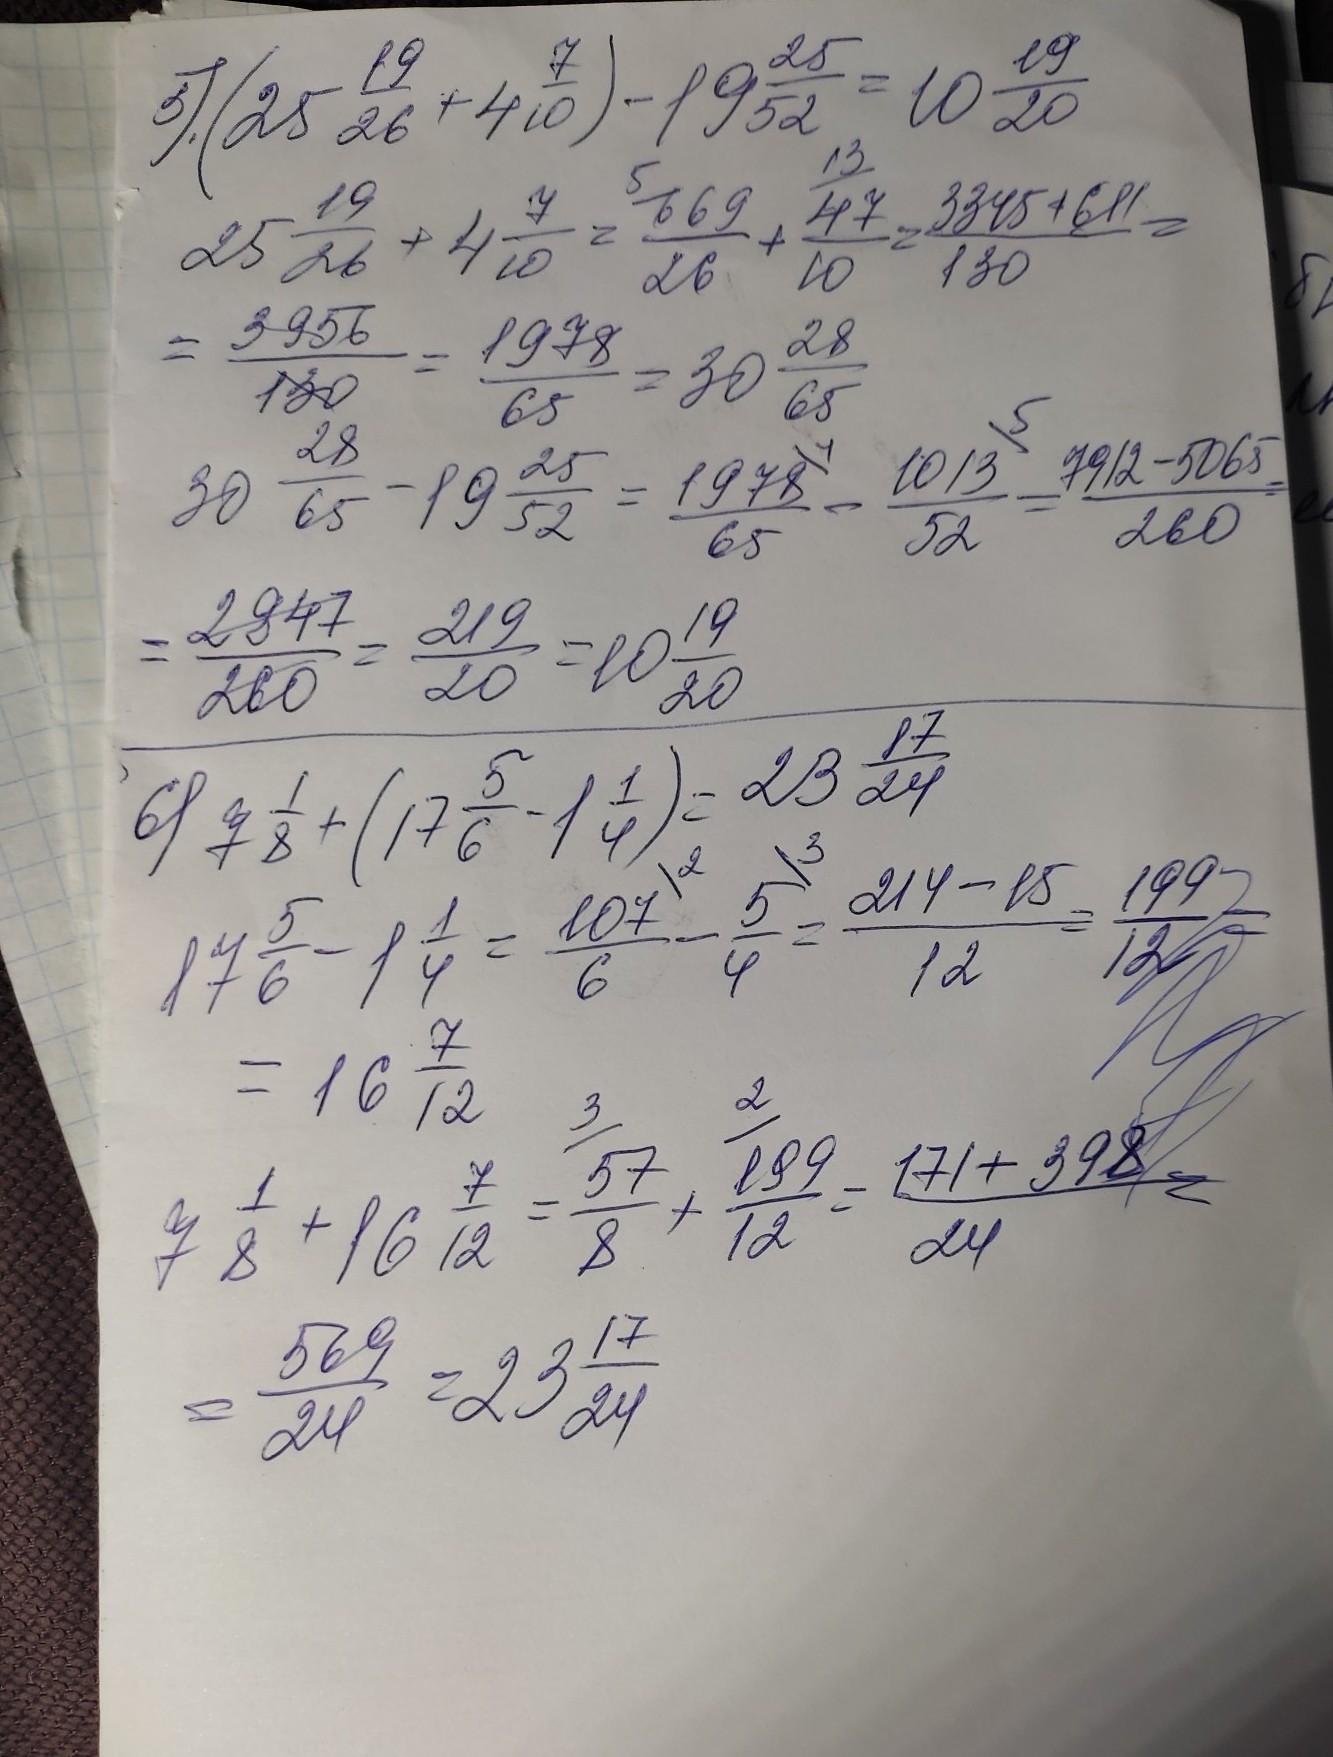 5). (25 19/26 + 4 7/10) - 19 25/52 = 10 19/20
25 19/26 + 4 7/10 = 5/ 669/26 + 13/ 47/10 = 3345+611/130 =
= 3956/130 = 1978/65 = 30 28/65
30 28/65 - 19 25/52 = 1978/65 \4 - 1013/52 \5 = 7912-5065/260 =
= 2847/260 = 219/20 = 10 19/20
6) 7 1/8 + (17 5/6 - 1 1/4) = 23 17/24
17 5/6 - 1 1/4 = 107/6 \2 - 5/4 \3 = 214-15/12 = 199/12 =
= 16 7/12
7 1/8 + 16 7/12 = 3/ 57/8 + 2/ 199/12 = 171+398/24 =
= 569/24 = 23 17/24